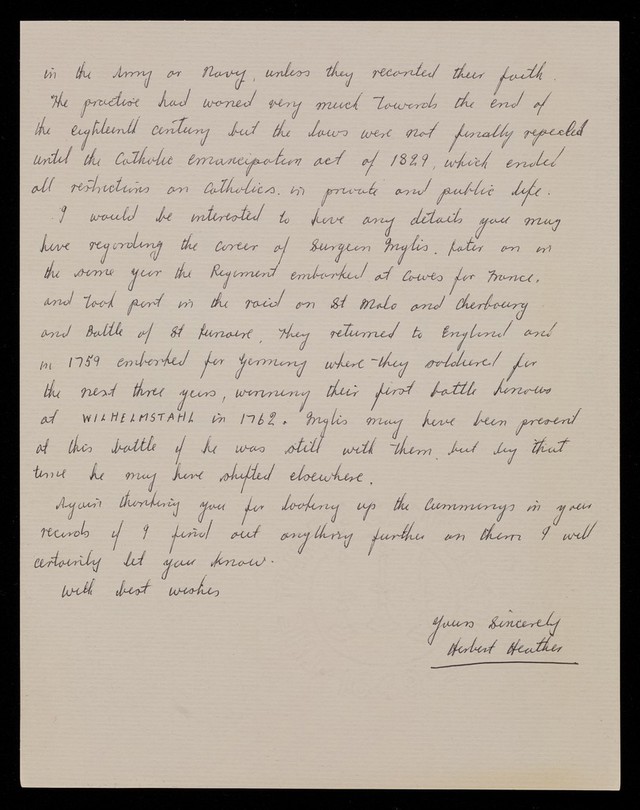 in the Army or Navy, unless they recanted their faith.
The practise had waned very much towards the end of
the eighteenth century but the laws were not finally repealed
until the Catholic emancipation act of 1829, which ended
all restrictions on Catholics, in private and public life.
I would be interested to have any details you may
have regarding the career of Surgeon Inglis. Later on in
the same year the Regiment embarked at Cowes for France,
and took part in the raid on St Malo and Cherbourg
and Battle of St Lunaire. They returned to England and
in 1759 embarked for Germany where they soldiered for
the next three years, winning their first battle honours
at WILHELMSTAHL in 1762. Inglis may have been present
at this battle if he was still with them, but by that
time he may have shifted elsewhere.
Again thanking you for looking up the Cummings in your
records if I find out anything further on them I will
certainly let you know.
With best wishes
Yours Sincerely
Herbert Heather